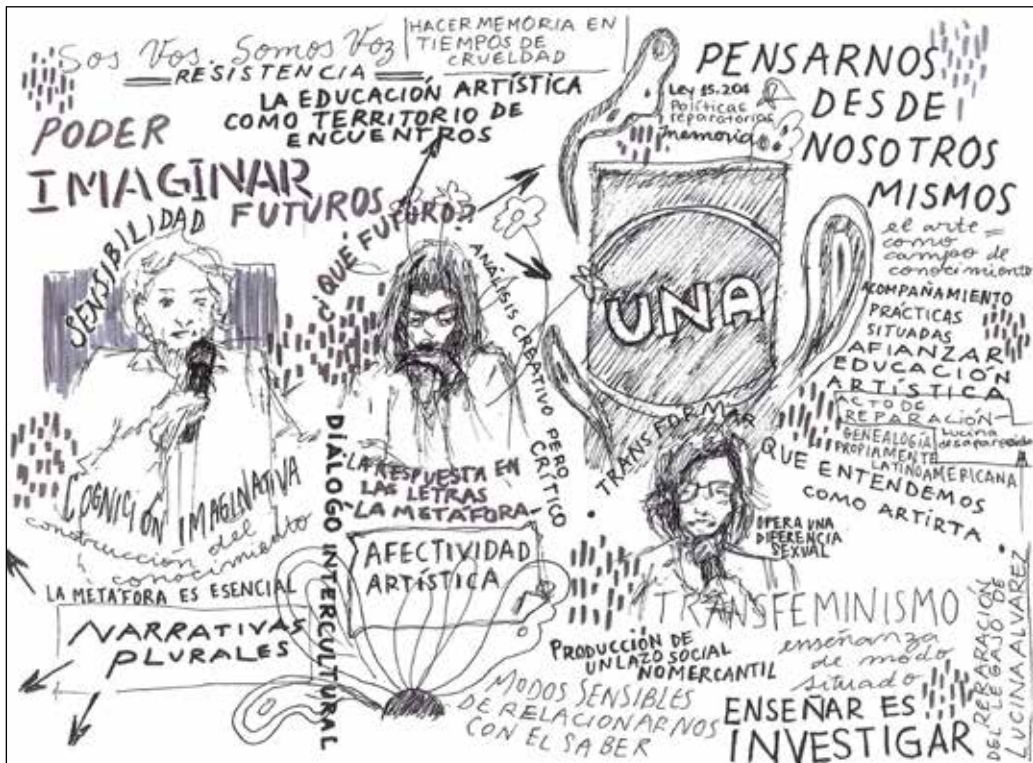 Sos Vos. Somos Voz
RESISTENCIA
HACER MEMORIA EN
TIEMPOS DE
CRUELDAD
LA EDUCACIÓN ARTÍSTICA
COMO TERRITORIO DE
ENCUENTROS
PODER
IMAGINAR
FUTUROS
¿QUÉ FUTURO?
SENSIBILIDAD
Ley 15.201
Políticas
reparatorias
memoria
PENSARNOS
DESDE
NOSOTROS
MISMOS
el arte
como
campo de
conocimiento
ACOMPAÑAMIENTO
PRÁCTICAS
SITUADAS
AFIANZAR
EDUCACIÓN
ARTÍSTICA
ACTO DE
REPARACIÓN
GENEALOGÍA
PROPIAMENTE
LATINOAMERICANA
Lucina
desaparecida
UNA
ANÁLISIS CREATIVO PERO
CRÍTICO
TRANSFORMAR
QUE ENTENDEMOS
COMO ARTIRTA.
OPERA UNA
DIFERENCIA
SEXUAL
COGNICIÓN IMAGINATIVA
construcción del
conocimiento
LA METÁFORA ES ESENCIAL
NARRATIVAS
PLURALES
DIÁLOGO INTERCULTURAL
LA RESPUESTA EN
LAS LETRAS
LA METÁFORA
AFECTIVIDAD
ARTÍSTICA
TRANSFEMINISMO
PRODUCCIÓN DE
UN LAZO SOCIAL
NO MERCANTIL
enseñanza
de modo
situado
MODOS SENSIBLES
DE RELACIONARNOS
CON EL SABER
ENSEÑAR ES
INVESTIGAR
REPARACIÓN
DEL LEGAJO DE
LUCINA ALVAREZ